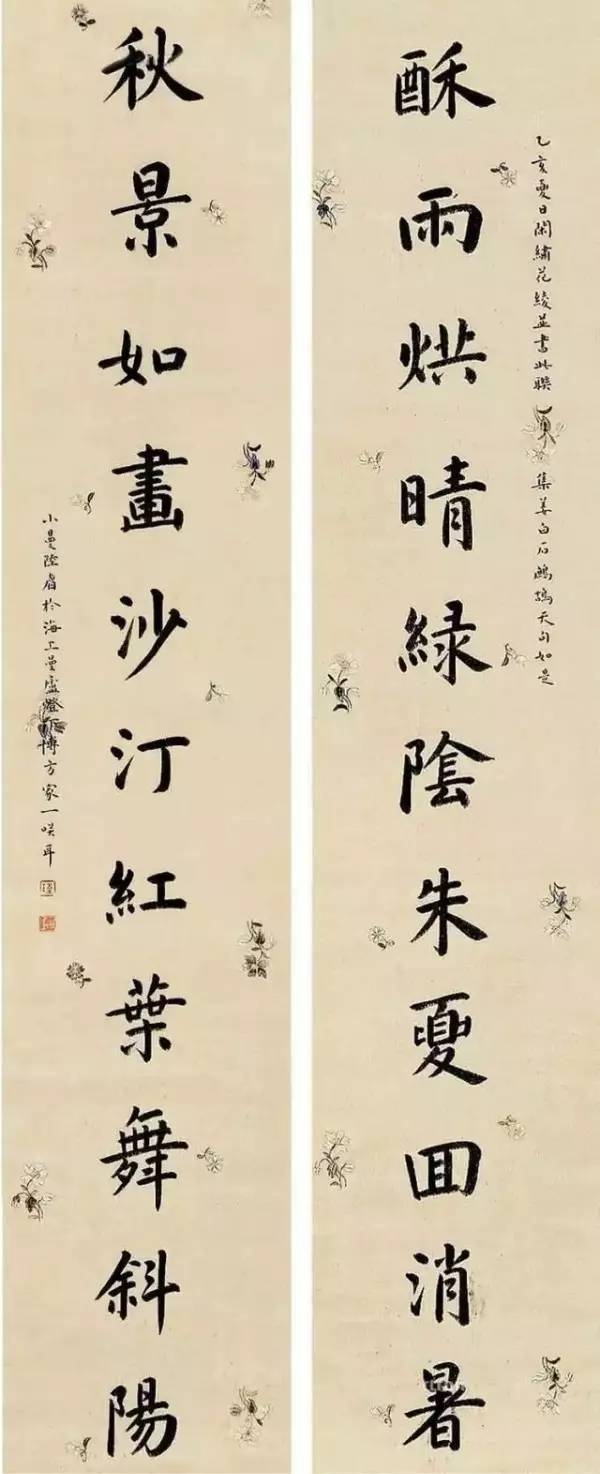 乙亥夏日閑繡花綾並書此聯
集姜白石鷓鴣天句如是
酥雨烘晴綠陰朱夏回消暑
秋景如畫沙汀紅葉舞斜陽
小曼陸眉於海上曼廬燈下博方家一咲耳